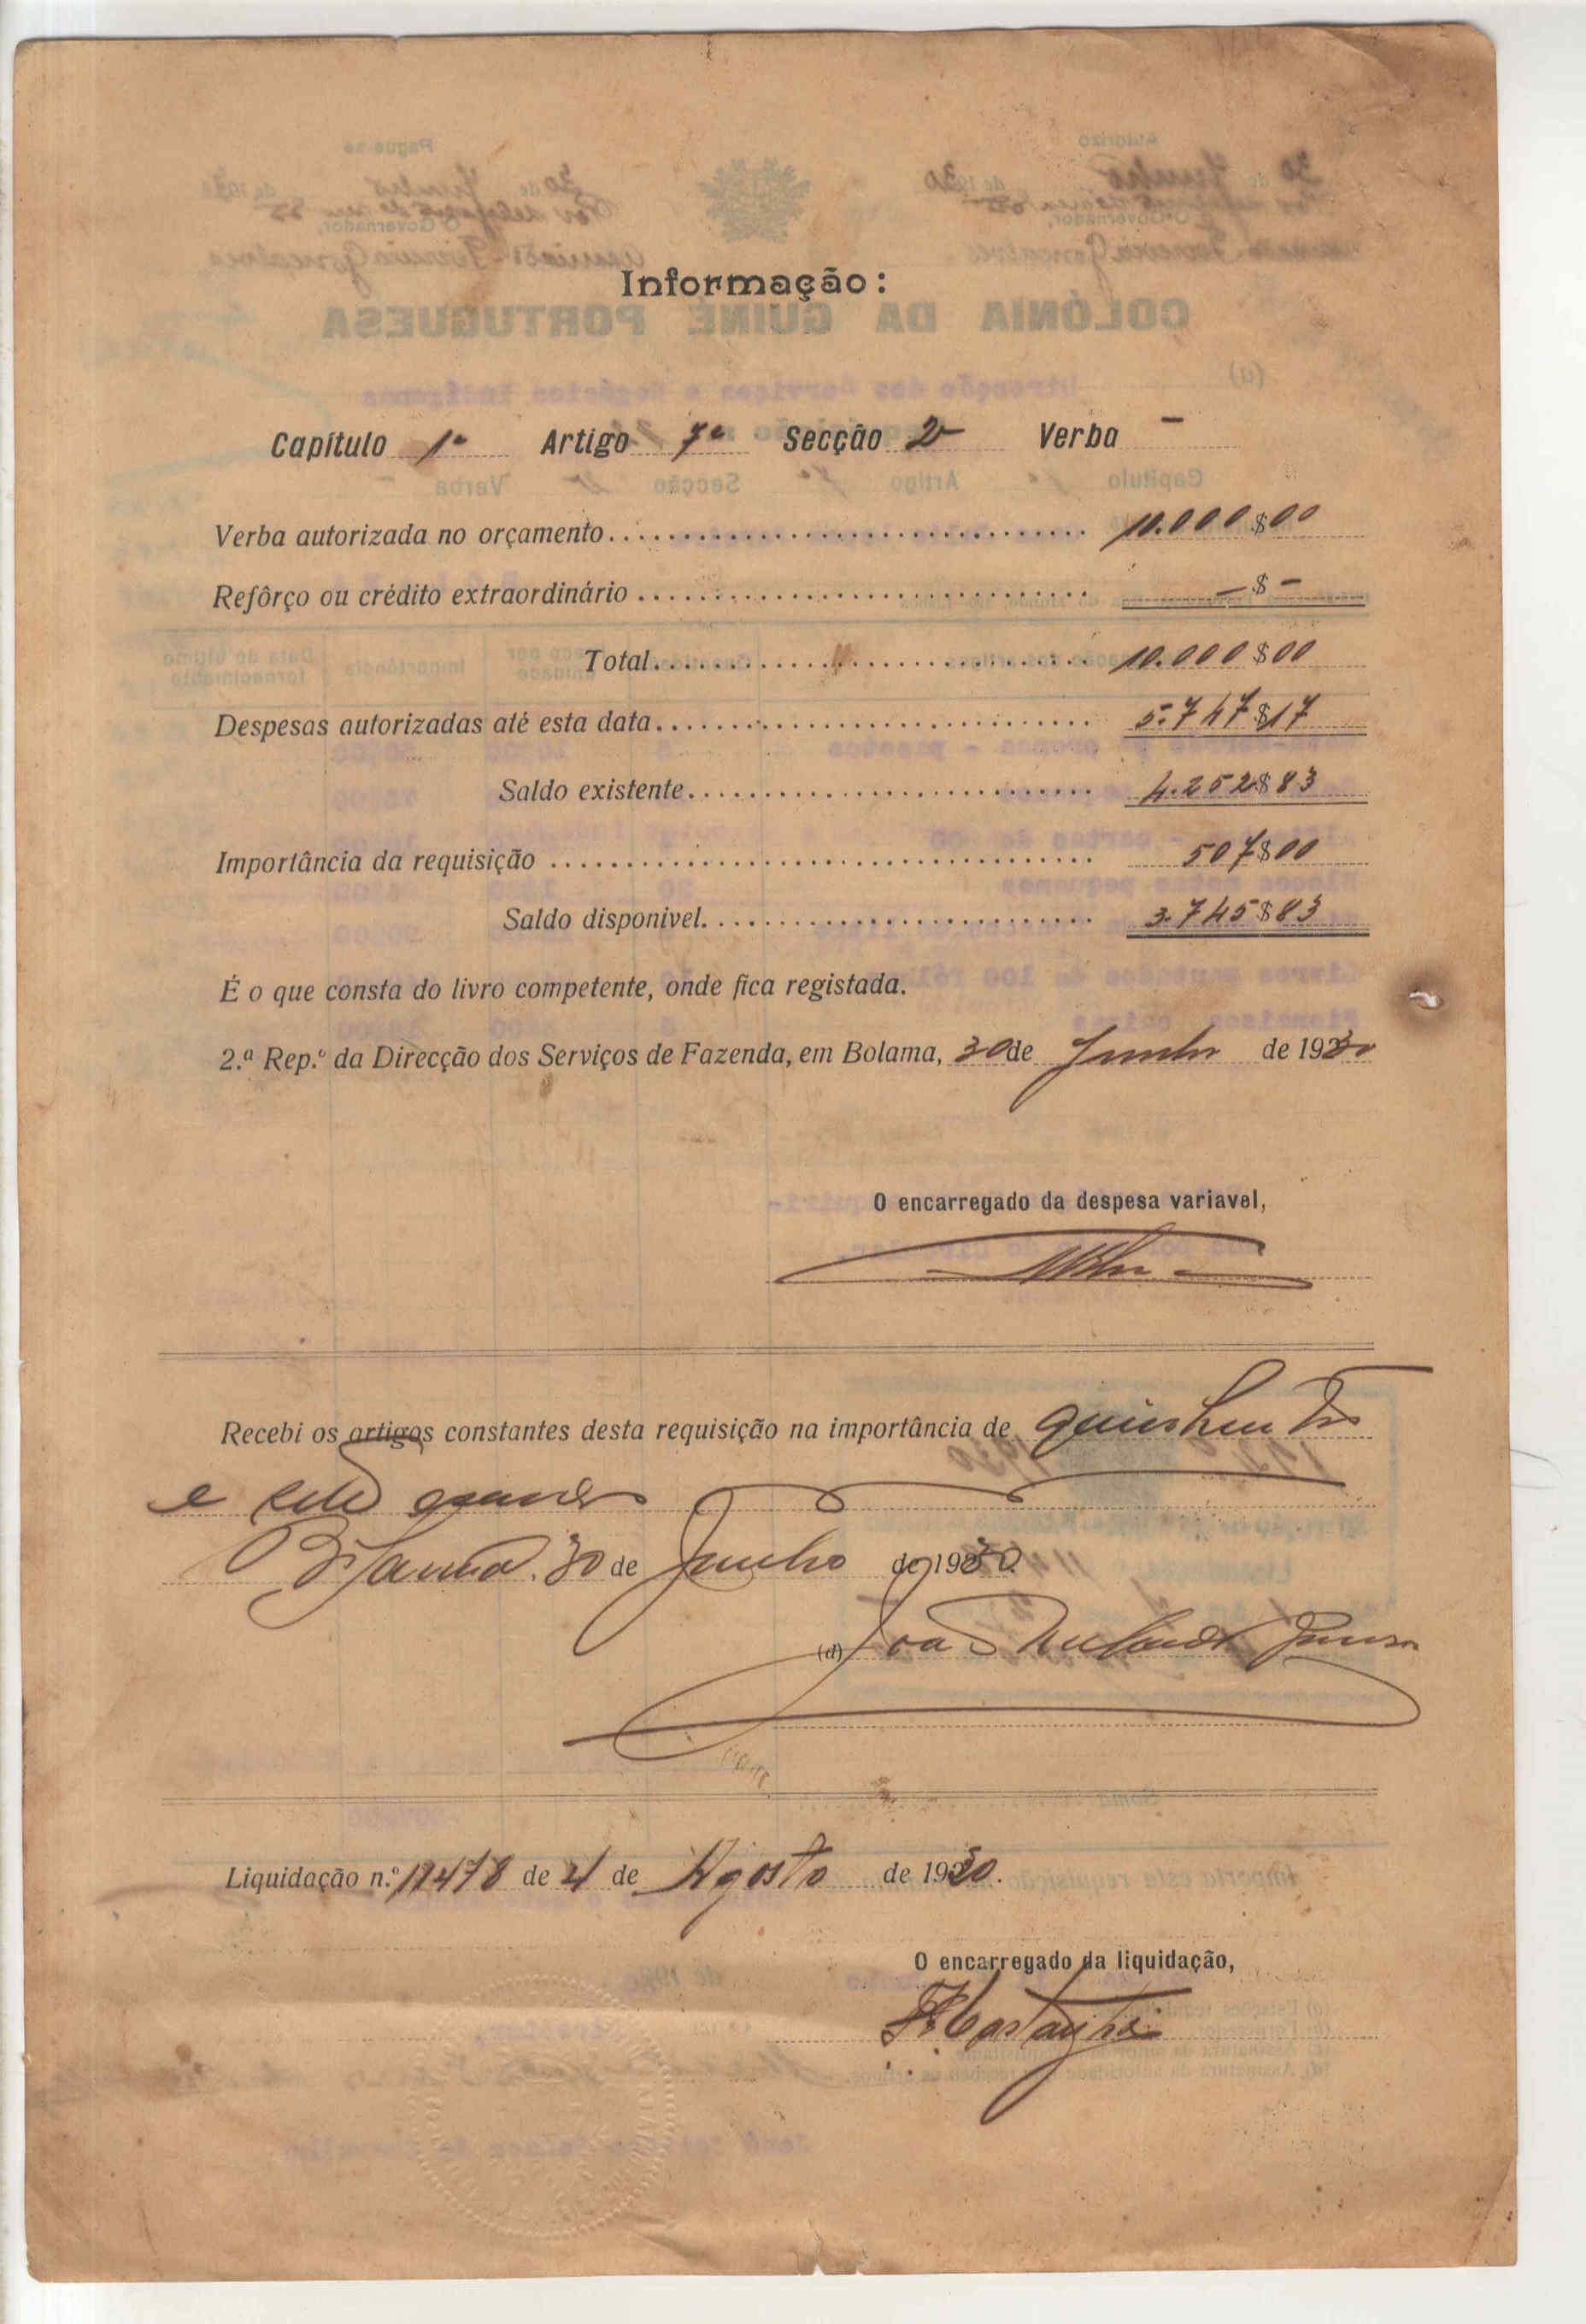 Informação:
Capítulo 1º Artigo 7º Secção 2ª Verba -
Verba autorizada no orçamento 10.000$00
Refôrço ou crédito extraordinário -$-
Total 10.000$00
Despesas autorizadas até esta data 5.747$17
Saldo existente 4.252$83
Importância da requisição 507$00
Saldo disponivel 3.745$83
É o que consta do livro competente, onde fica registada.
2.ª Rep.º da Direcção dos Serviços de Fazenda, em Bolama, 30 de Junho de 1930
O encarregado da despesa variavel,
Recebi os artigos constantes desta requisição na importância de quinhentos
e sete
30 de Junho de 1930.
(d) João
Liquidação n.º 11478 de 4 de Agosto de 1930.
O encarregado da liquidação,